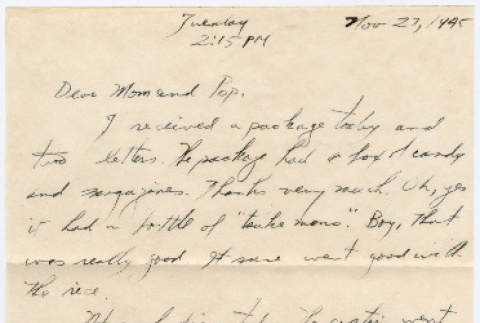 Tuesday Nov 27, 1945
2:15 PM
Dear Mom and Pop,
I received a package today and
two letters. The package had a box of candy
and magazines. Thanks very much. Oh, yes
it had a bottle of "tsuke mono". Boy, that
was really good. It sure went good with
the rice.
went